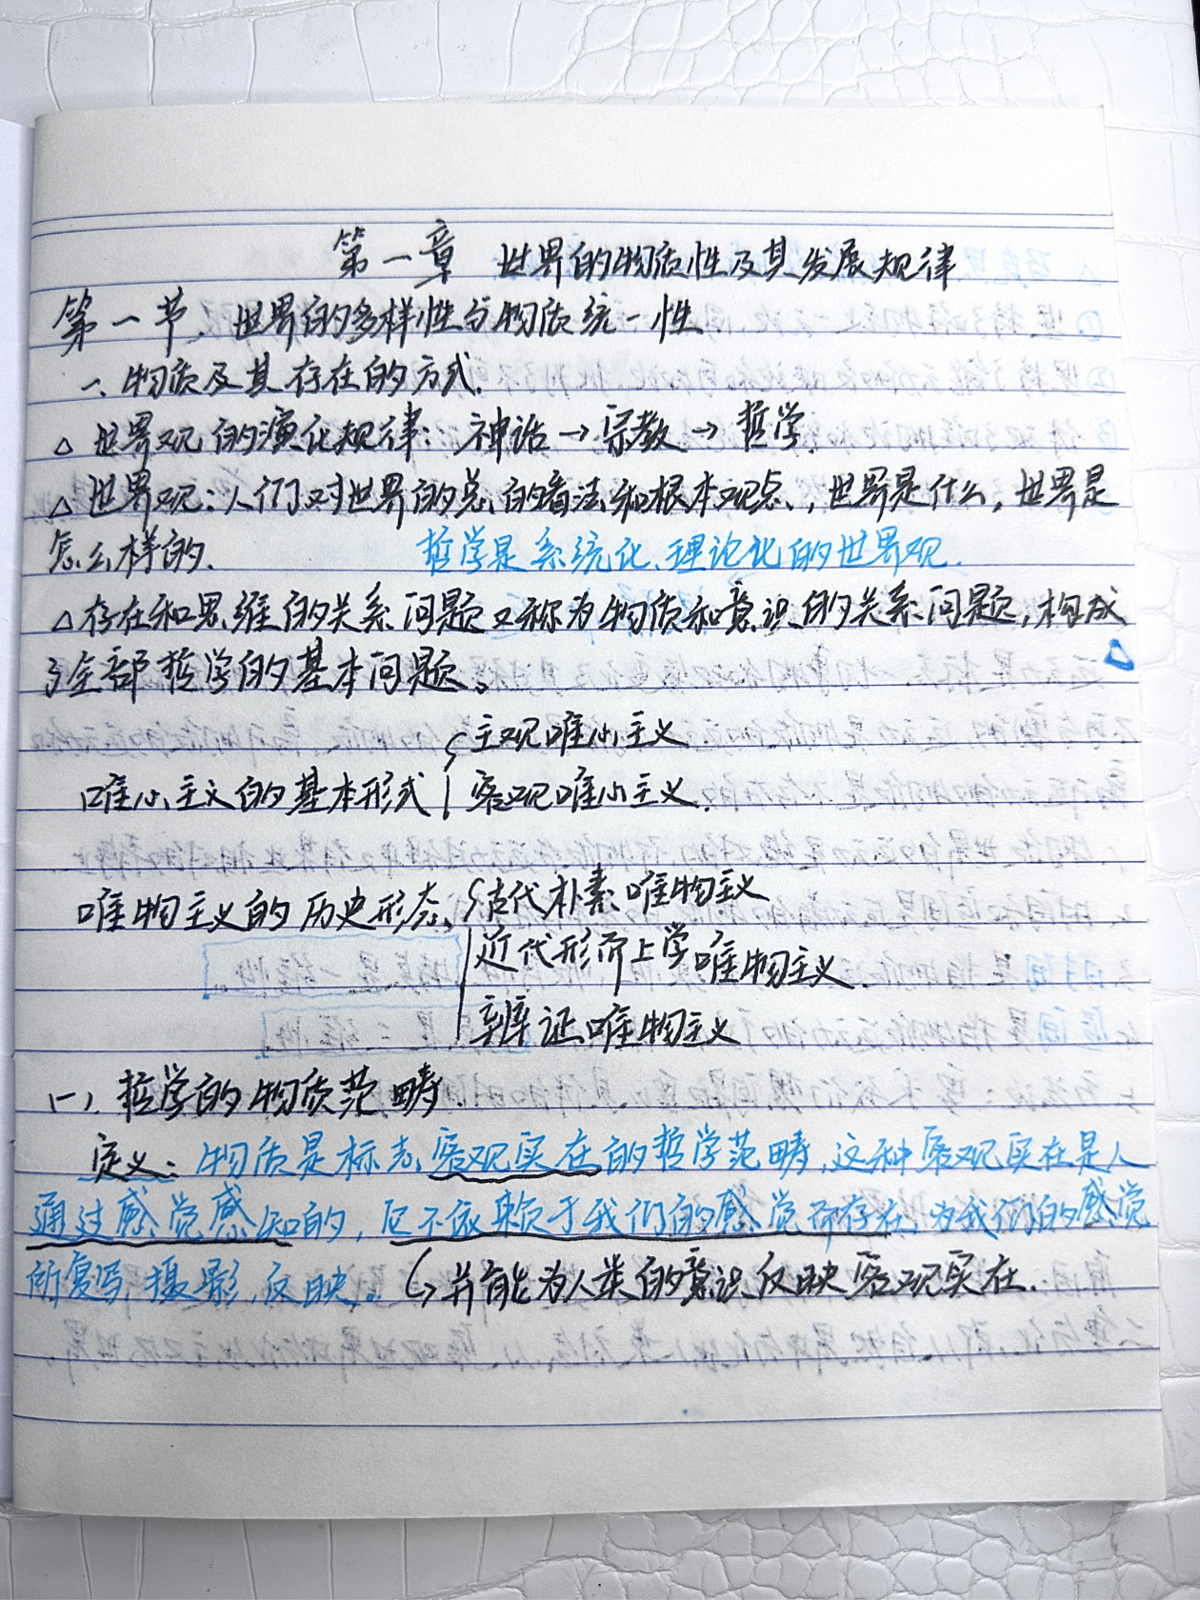 第一章 世界的物质性及其发展规律
第一节、世界的多样性与物质统一性
一、物质及其存在的方式.
△ 世界观的演化规律：神话→宗教→哲学.
△ 世界观：人们对世界的总的看法和根本观点、，世界是什么，世界是
怎么样的. 哲学是系统化、理论化的世界观.
△存在和思维的关系问题又称为物质和意识的关系问题，构成
了全部哲学的基本问题。
主观唯心主义
唯心主义的基本形式 客观唯心主义.
唯物主义的历史形态、 古代朴素唯物主义
近代形而上学唯物主义.
辨证唯物主义
(一). 哲学的物质范畴.
定义：物质是标志客观实在的哲学范畴，这种客观实在是人
通过感觉感知的，它不依赖于我们的感觉而存在，为我们的感觉
所复写，摄影，反映。 ↳并能为人类的意识反映客观实在.